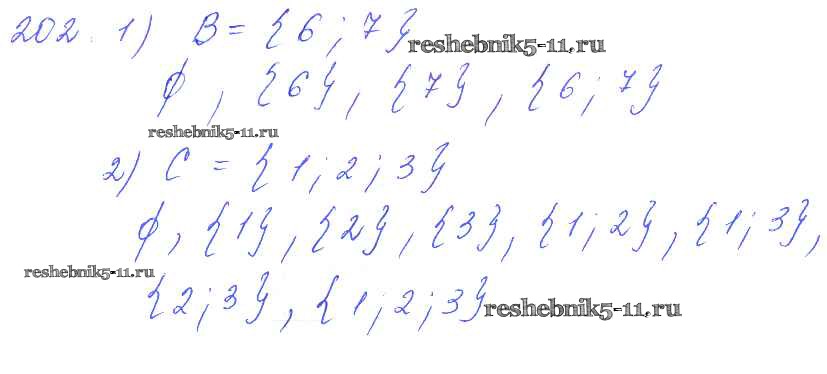 202. 1) B = {6; 7}
reshebnik5-11.ru
∅, {6}, {7}, {6; 7}
reshebnik5-11.ru
2) C = {1; 2; 3}
∅, {1}, {2}, {3}, {1; 2}, {1; 3},
reshebnik5-11.ru
{2; 3}, {1; 2; 3}
reshebnik5-11.ru